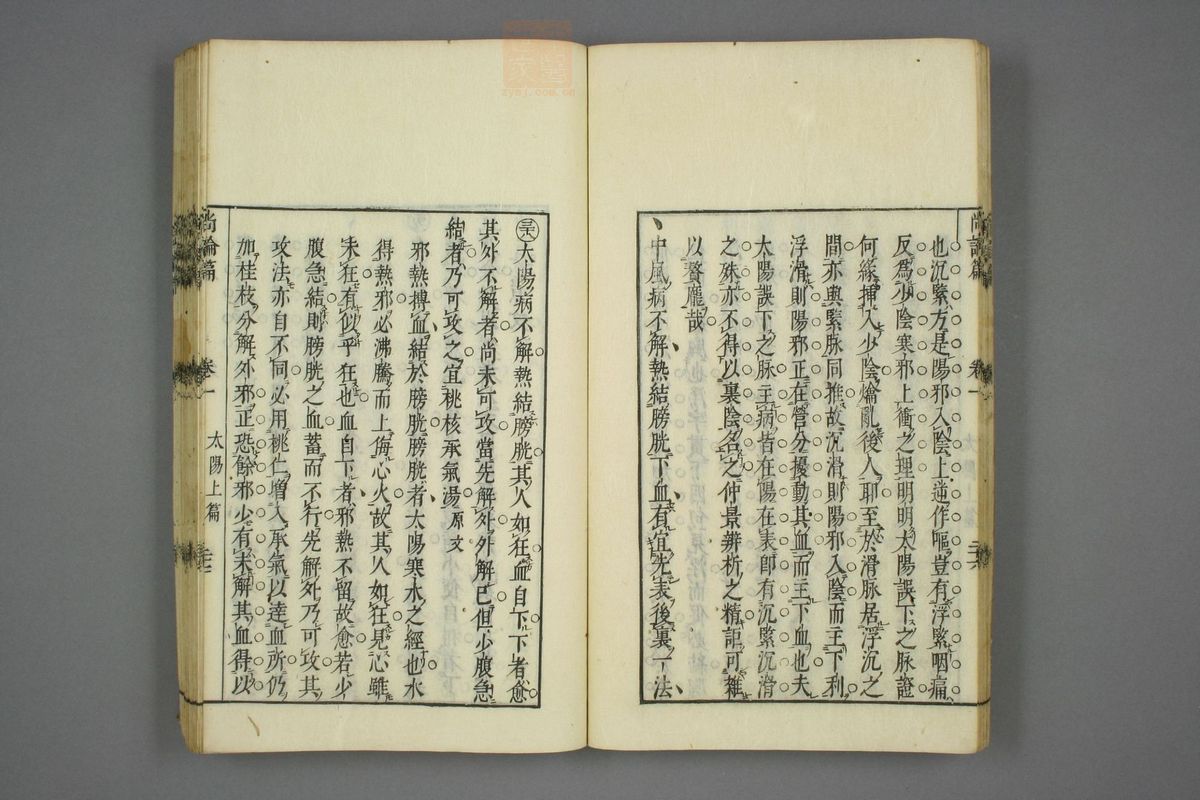 也沉緊方是陽邪入陰上逆作嘔豈有浮緊咽痛
反爲少陰寒邪上衝之理明明太陽誤下之脉證
何緣挿入少陰燴亂後人耶至於滑脉居浮沉之
間亦與緊脉同推故沉滑則陽邪入陰而主下利
浮滑則陽邪正在營分擾動其血而主下血也夫
太陽誤下之脉主病皆在陽在表卽有沉緊沉滑
之殊亦不得以裏陰名之仲景辨析之精詎可雜
以贅龐哉
中風病不解熱結膀胱下血有宜先表後裏一法
太陽病不解熱結膀胱其人如狂血自下下者愈
其外不解者尚未可攻當先解外外解已但少腹急
結者乃可攻之宜桃核承氣湯 原文
邪熱搏血結於膀胱膀胱者太陽寒水之經也水
得熱邪必沸騰而上侮心火故其人如狂見心雖
未狂有似乎狂也血自下者邪熱不留故愈若少
腹急結則膀胱之血蓄而不行先解外乃可攻其
攻法亦自不同必用桃仁增入承氣以達血所仍
加桂枝分解外邪正恐餘邪少有未解其血得以
尚論篇 卷一 太陽上篇
zysj.com.cn